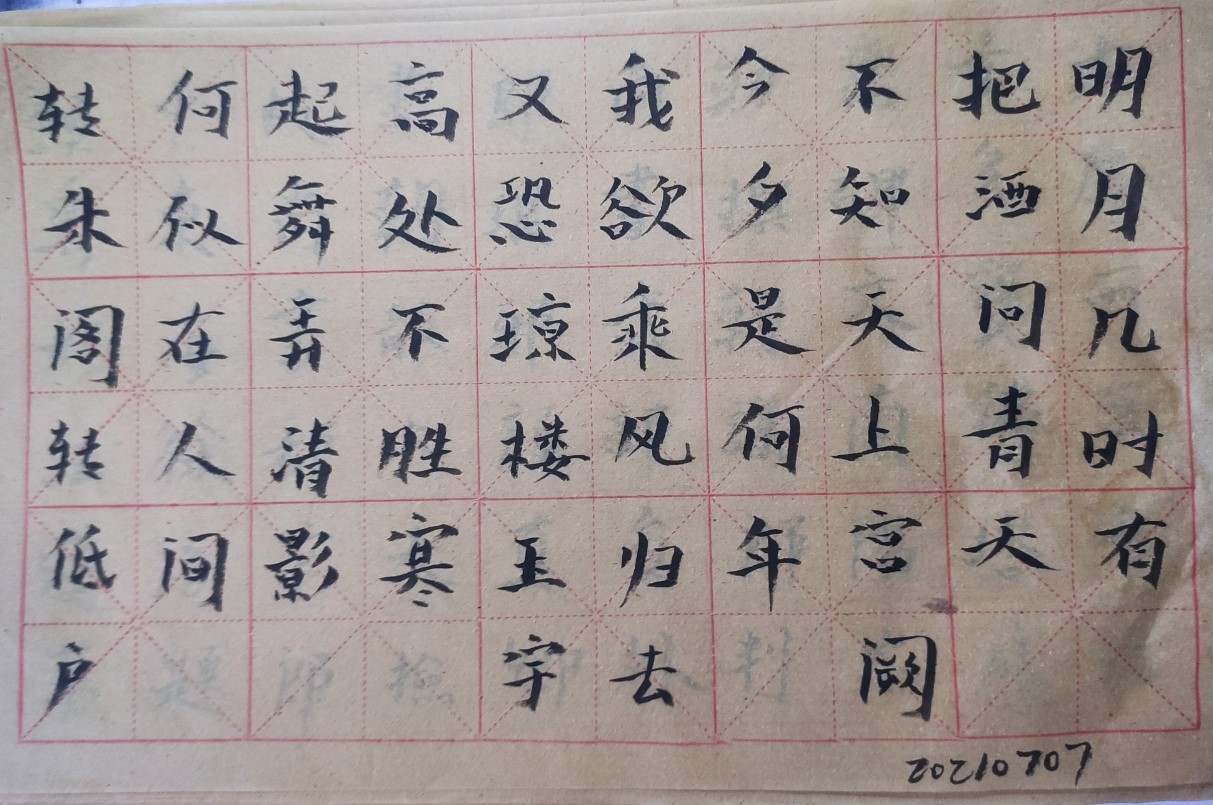 明月几时有
把酒问青天
不知天上宫阙
今夕是何年
我欲乘风归去
又恐琼楼玉宇
高处不胜寒
起舞弄清影
何似在人间
转朱阁转低户
20210707